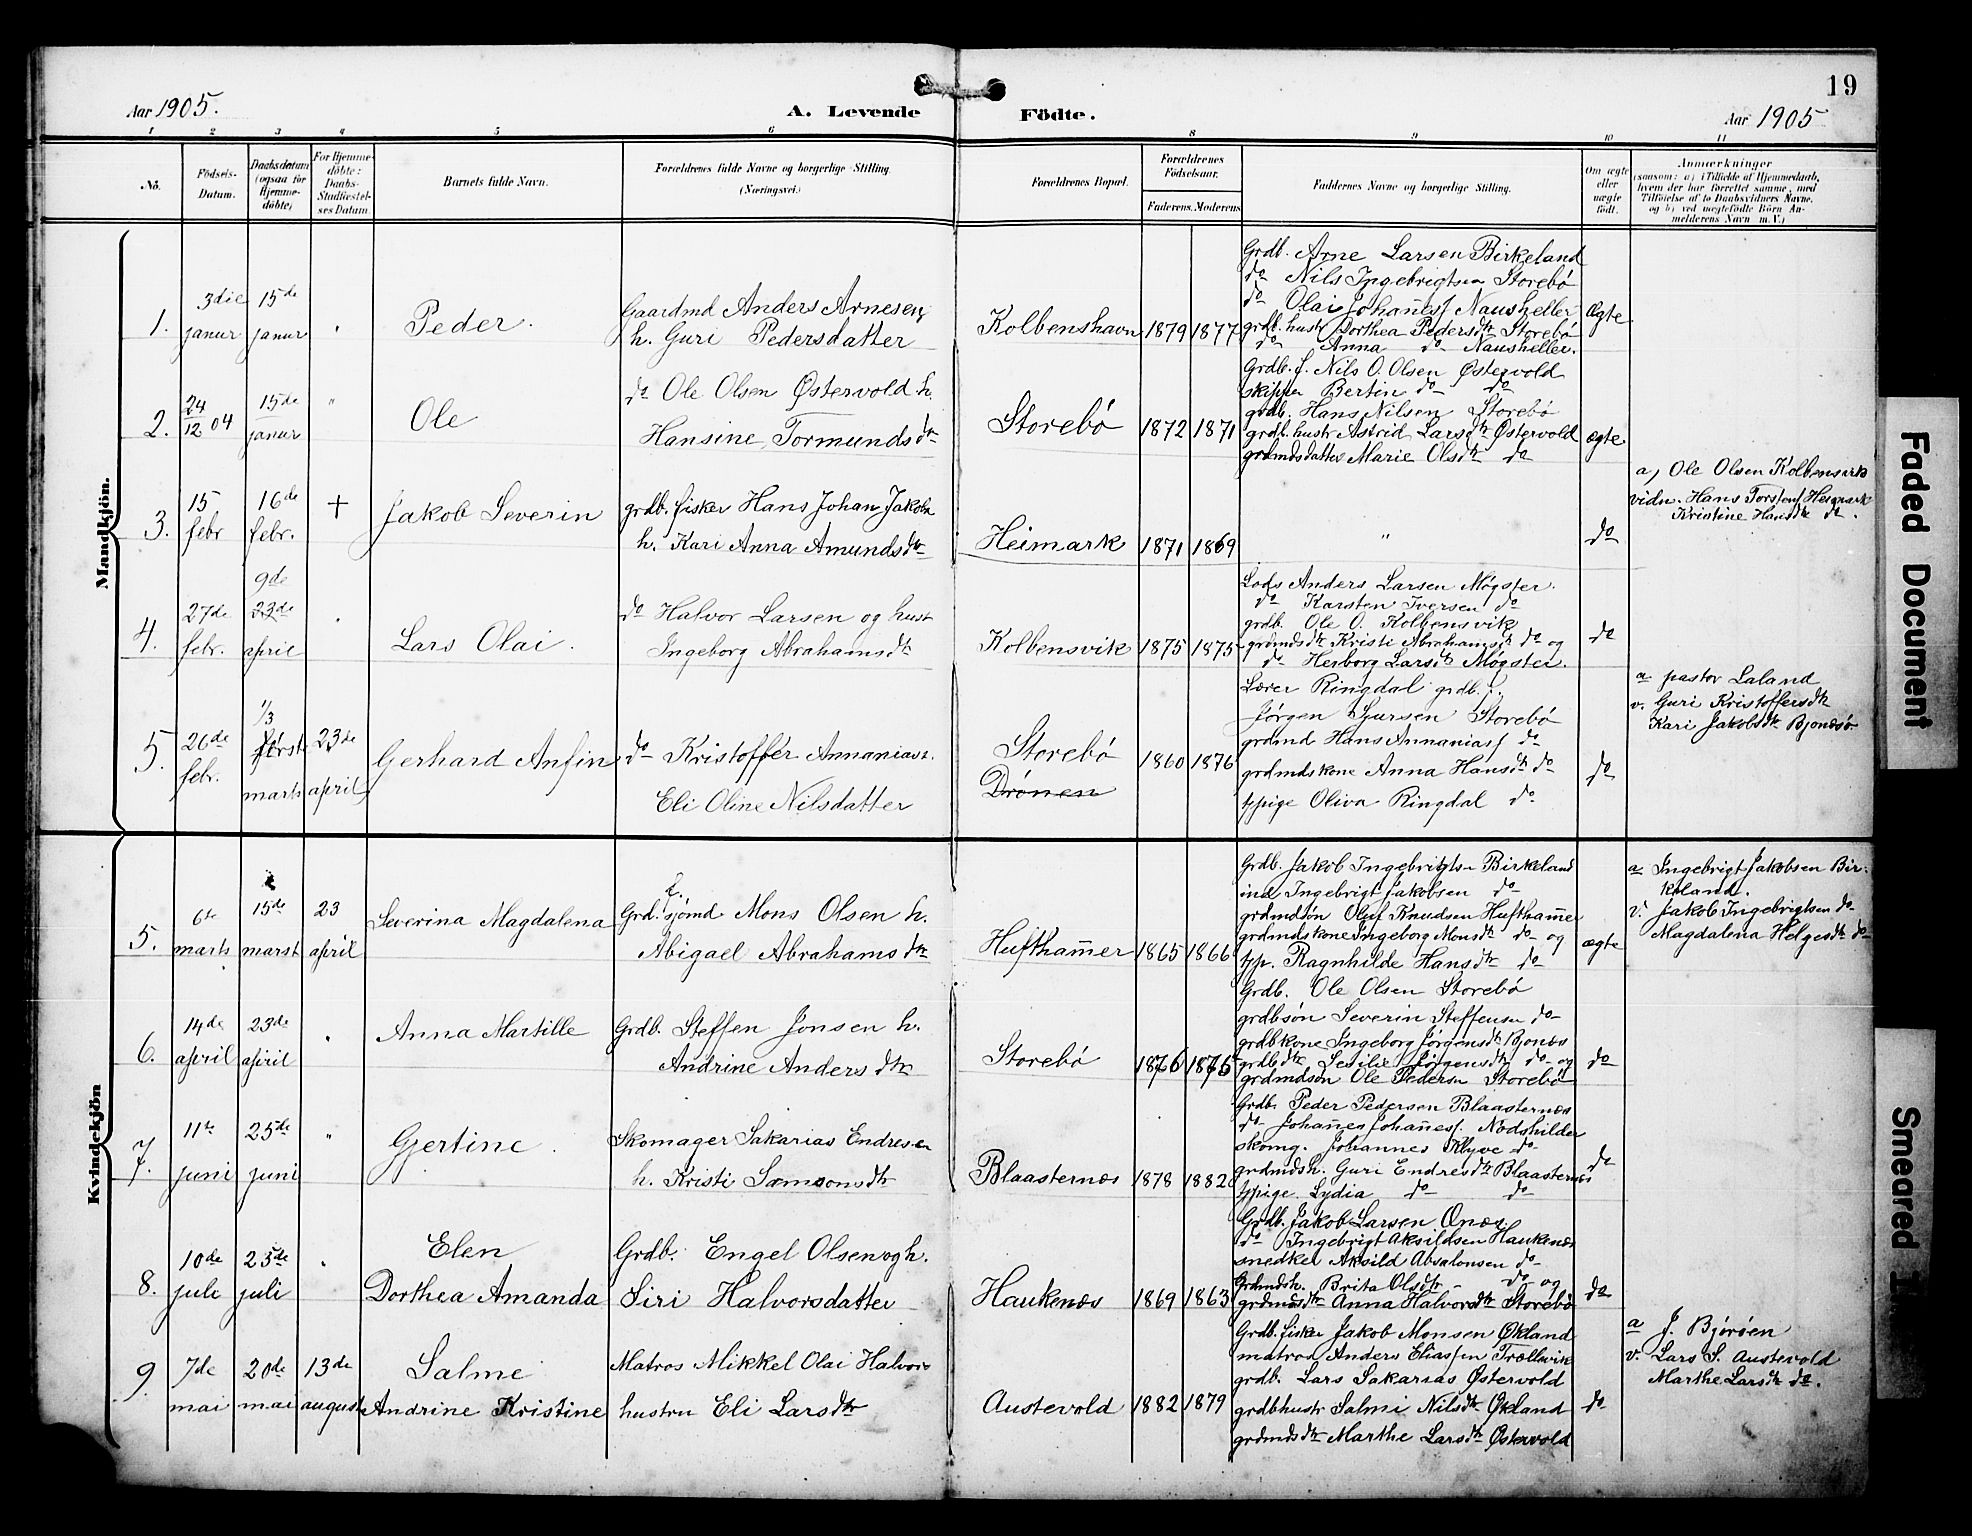 19
Aar 1905.
A. Levende
Födte.
Aar 1905
1 2 3 4 5 6 8 9 10 11
No.
Födsels-Datum.
Daabsdatum (ogsaa for Hjemme-döbte)
For Hjemme-döbte: Daabs-Stadfæstelses Datum
Barnets fulde Navn.
Forældrenes fulde Navne og borgerlige Stilling.
(Næringsvei.)
Forældrenes Bopæl.
Forældrenes Födselsaar.
Faderens. Moderens
Faddernes Navne og borgerlige Stilling.
Om ægte eller uægte födt.
Anmærkninger
(saasom: a) i Tilfælde af Hjemmedaab,
hvem der har forrettet samme, med
Tilföielse af to Daabsvidners Navne,
og b) ved uægtefödte Börn An-
melderens Navn m. V.)
Mandkjön.
1.
3die janur
15de janur
"
Peder.
Gaardmd Anders Arnesen,
h. Guri Pedersdatter
Kolbenshavn
1879
1877
Grdb. Arne Larsen Birkeland
do Nils Ingebrigtsen Storebö
do Olai Johannesf Nausheller
grdb. hustr Dorthea Pedersdtr Storebö
do Anna do Nausheller.
Ægte
2.
24/12 04
15de janur
"
Ole
do Ole Olsen Østervold h.
Hansine Tormundsdtr
Storebö
1872
1871
Grdb. f. Nils O. Olsen Østervold
skipper Bertin do do
grdb. Hans Nilsen Storebö
grdb. hustr Astrid Larsdtr Østervold
grdmdsdatter Marie Olsdtr do
ægte
3.
15 febr
16de febr.
+
Jakob Severin
grdb. fisker Hans Johan Jakobsn
h. Kari Anna Amundsdtr
Heimark
1871
1869
"
do
a) Ole Olsen Kolbensvik
vidn. Hans Torstensf Heimark
Kristine Hansdtr do.
4.
27de febr.
9de
23de
april
"
Lars Olai.
do Halvor Larsen og hust
Ingeborg Abrahamsdtr
Kolbensvik
1875
1875
Lods Anders Larsen Møgster.
do Karsten Iversen do
grdb. Ole O. Kolbensvik
grdmdsdtr Kristi Abrahamsdtr do og
do Herborg Larsdtr Møgster.
do
5.
26de febr.
1/3
först
marts
23de april
Gerhard Anfin
do Kristoffer Annaniasn.
Eli Oline Nilsdatter
Storebö
Drönen
1860
1876
Lærer Ringdal grdb. f.
Jørgen Sjursen Storebö
grdmd Hans Annaniasf do
grdmdskone Anna Hansdtr do
tjpige Oliva Ringdal do
do
a pastor Laland
v. Guri Kristoffersdtr
Kari Jakobsdtr Bjonæsö
Kvindekjön
5.
6te marts
15de marst
23 april
Severina Magdalena
Grd. f. sjömd Mons Olsen h.
Abigael Abrahamsdtr
Hufthammer
1865
1866
Grdb. Jakob Ingebrigtsn Birkeland
ind. Ingebrigt Jakobsen do
grdmdsön Oluf Knudsen Hufthammer
grdmdskone Ingeborg Monsdtr do og
tjp. Ragnhilde Hansdtr do
ægte
a Ingebrigt Jakobsen Bir-
keland.
v. Jakob Ingebrigtsen do
Magdalena Helgesdtr do
6.
14de april
23de april
"
Anna Martille
Grdb. Steffen Jonsen h.
Andrine Andersdtr
Storebö
1876
1875
Grdb. Ole Olsen Storebö
grdbsön Severin Steffensen do
grdbkone Ingeborg Jörgensdtr Bjonæs
grdbdtr Sesilie Jörgensdtr do og
grdmdsön Ole Pedersn Storebö
do
7.
11te juni
25de juni
"
Gjertine.
Skomager Sakarias Endresen
h. Kristi Samsonsdtr
Blaasternæs
1878
1882
Grdb. Peder Pedersen Blaasternæs
do Johannes Johannesf. Nodshilder
skomg. Johannes Klyve do
grdmdsh. Guri Endresdtr Blaasternæs
tjpige Lydia do do
do
8.
10de juli
23de juli
"
Elen
Dorthea Amanda
Grdb. Engel Olsen og h.
Siri Halvorsdatter
Haukenæs
1869
1863
Grdb. Jakob Larsen Ønæs.
do Ingebrigt Aksildsen Haukenæs
snedker Aksild Absalonsen do
Grdmdsh. Brita Olsdtr do og
grdmdsdtr Anna Halvorsdtr Storebö
do
9.
7de mai
20de mai
13de august
Salme
Andrine Kristine
Matros Mikkel Olai Halvors
hustru Eli Larsdtr
Austevold
1882
1879
Grdb. fisker Jakob Monsen Økland
matros Anders Eliassen Trællevik
grdb. Lars Sakarias Østervold
grdbhustr Salmi Nilsdtr Økland
grdmdsdtr Marthe Larsdtr Østervold
do
a J. Björöen
v. Lars S. Austevold
Marthe Larsdtr do.
Faded Document
Smeared